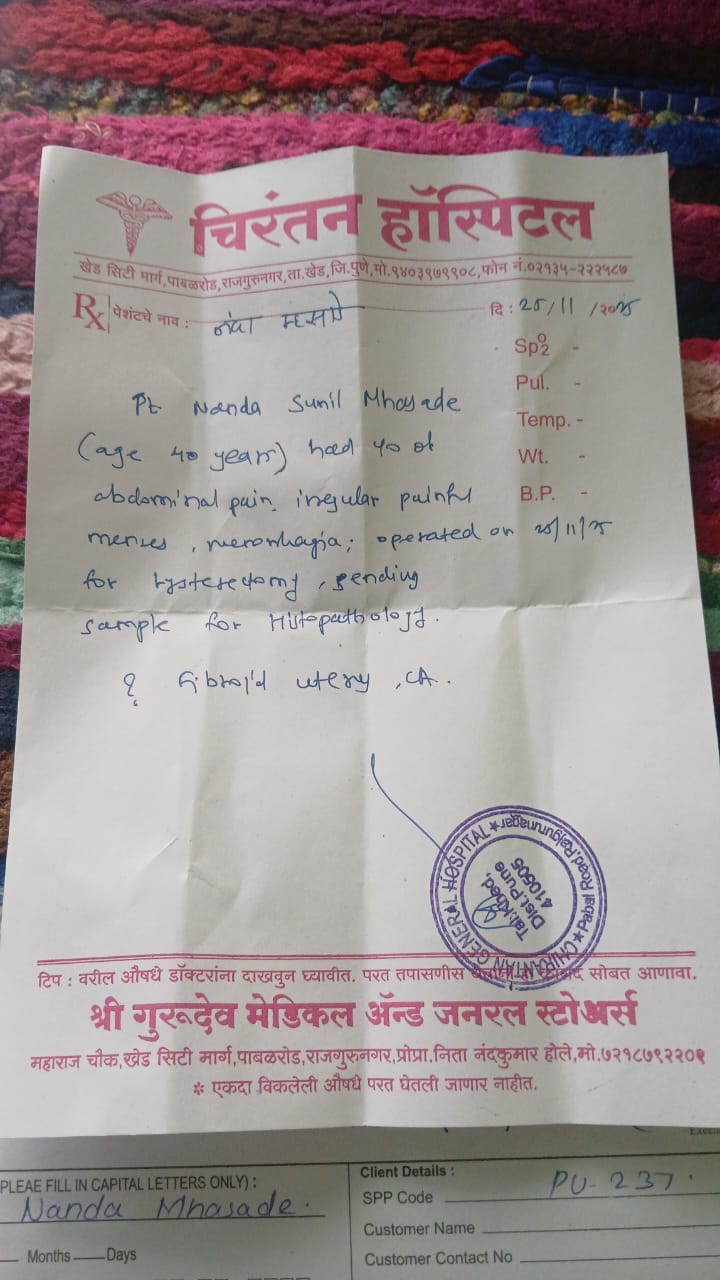 चिरंतन हॉस्पिटल
खेड सिटी मार्ग,पाबळरोड,राजगुरुनगर,ता.खेड,जि.पुणे,मो.९४०३९७९९०८,फोन नं.०२१३५-२२२५८७
Rx पेशंटचे नाव : नंदा म्हसाडे
दि : 25/11/२०२५
Spo2 -
Pul. -
Temp. -
Wt. -
B.P. -
Pt Nanda Sunil Mhasade
(age 40 years) had y/o of
abdominal pain, irregular painful
menses, menorrhagia; operated on 25/11/25
for hysterectomy, sending
sample for Histopathology.
? fibroid uterus, CA.
CHIRANTAN GENERAL HOSPITAL ★ Pabal Road, Rajgurunagar ★
Tal.Khed,
Dist.Pune
410505
टिप : वरील औषधे डॉक्टरांना दाखवुन घ्यावीत. परत तपासणीस सोबत आणावा.
श्री गुरूदेव मेडिकल ॲन्ड जनरल स्टोअर्स
महाराज चौक,खेड सिटी मार्ग,पाबळरोड,राजगुरुनगर,प्रोप्रा.निता नंदकुमार होले,मो.७२१८७९२२०१
* एकदा विकलेली औषधे परत घेतली जाणार नाहीत.
PLEAE FILL IN CAPITAL LETTERS ONLY) :
Nanda Mhasade.
Months Days
Client Details :
SPP Code PU-237.
Customer Name
Customer Contact No